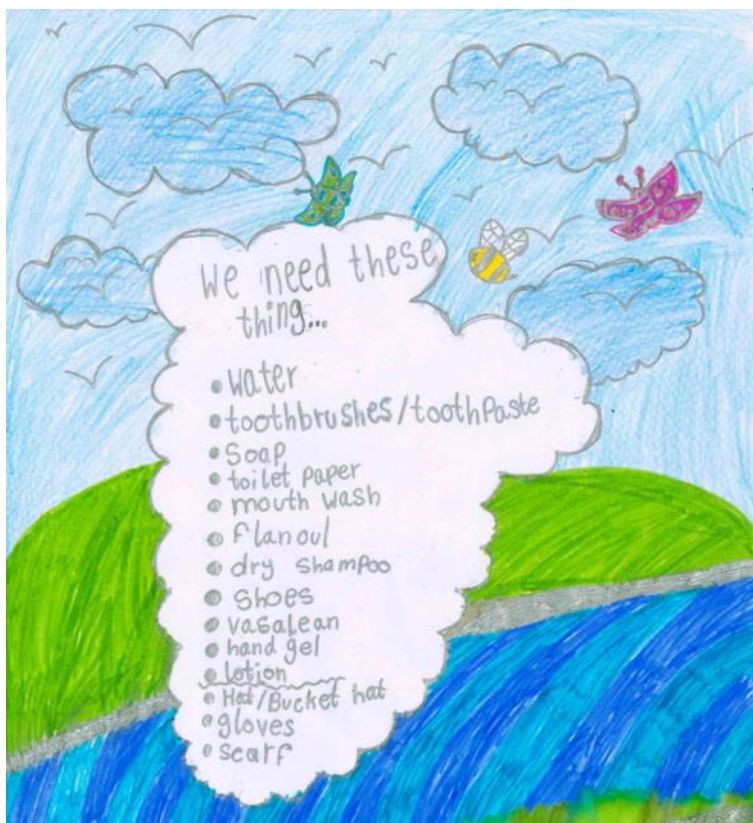 We need these
thing...
• water
• toothbrushes/toothpaste
• Soap
• toilet paper
• mouth wash
• flanoul
• dry shampoo
• shoes
• vasalean
• hand gel
• lotion
• Hat/Bucket hat
• gloves
• scarf